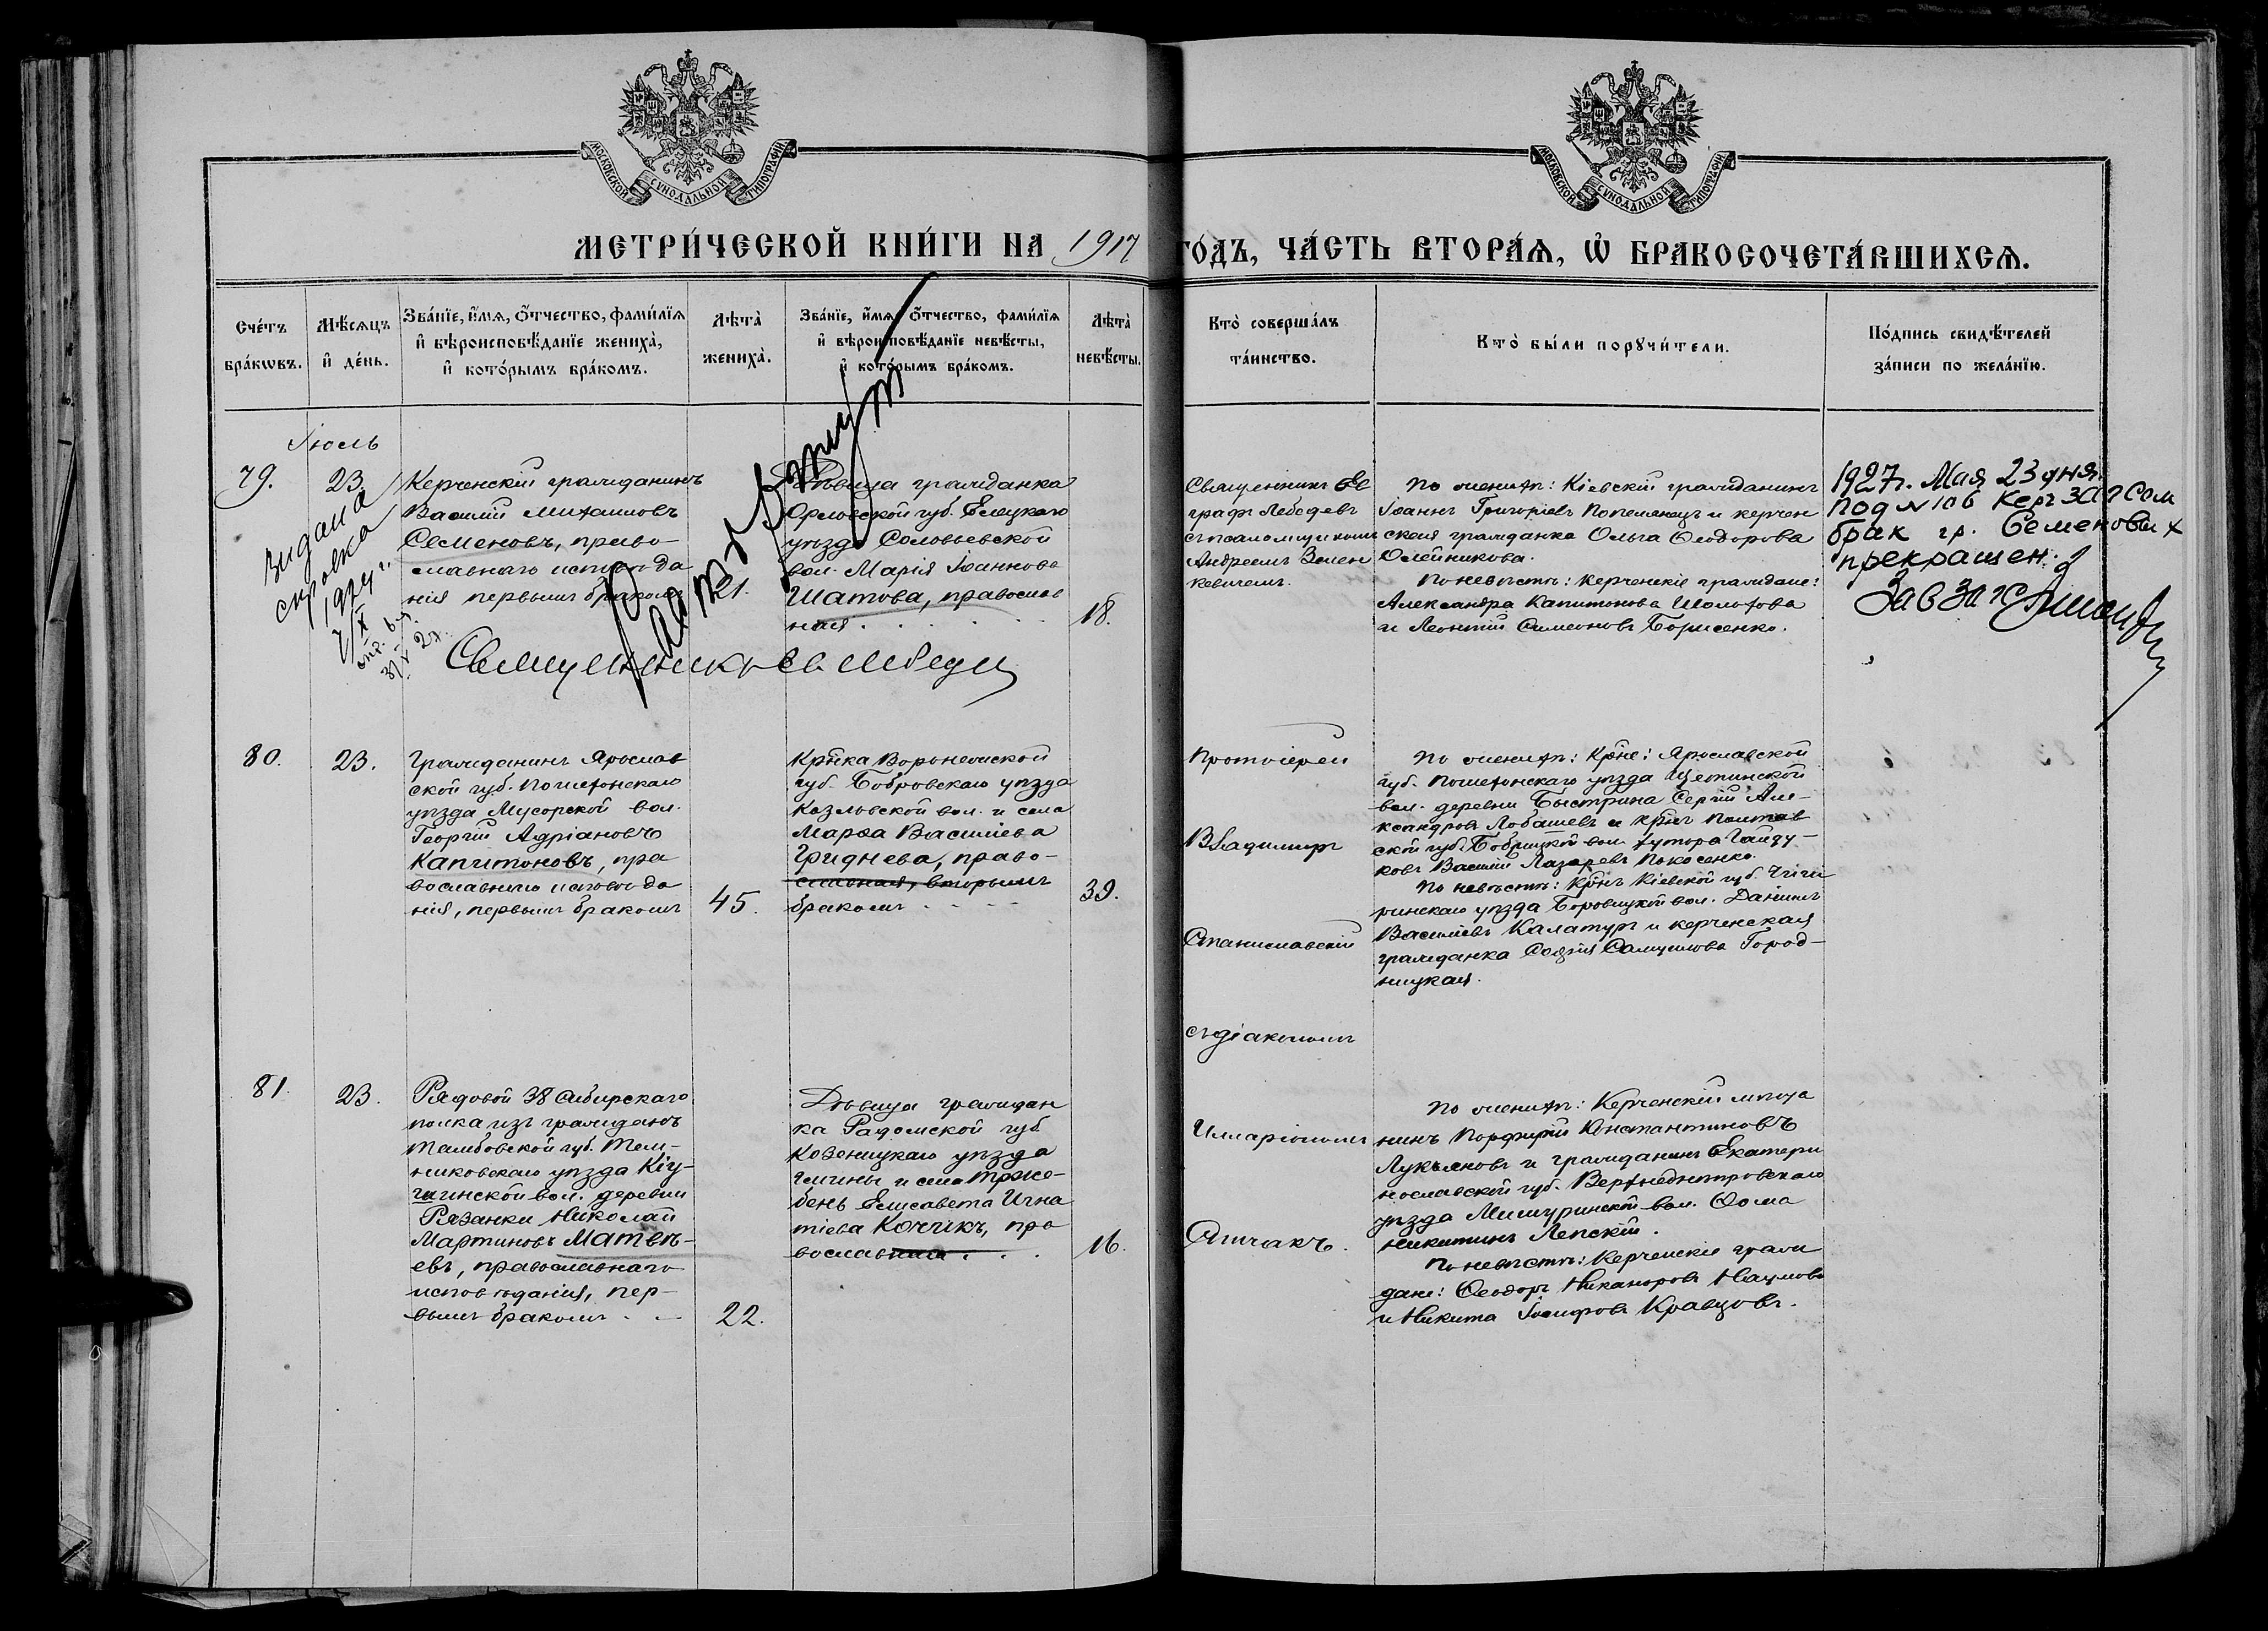 МОСКОВСКОЙ СѴНОДАЛЬНОЙ ТИПОГРАФІИ
МОСКОВСКОЙ СѴНОДАЛЬНОЙ ТИПОГРАФІИ
МЕТРИ́ЧЕСКОЙ КНИ́ГИ НА 1917 ГО́ДЪ, ЧА́СТЬ ВТОРА́Ѧ, Ѡ҆ БРАКОСОЧЕТА́ВШИХСѦ.
Сче́тъ
бра́кѡвъ.
Мѣ́сѧцъ
и҆ де́нь.
Зва́нїе, и҆́мѧ, ѻ҆́тчество, фами́лїѧ
и҆ вѣроисповѣ́данїе жениха̀,
и҆ кото́рымъ бра́комъ.
Лѣта̀
жениха̀.
Зва́нїе, и҆́мѧ, ѻ҆́тчество, фами́лїѧ
и҆ вѣроисповѣ́данїе невѣ́сты,
и҆ кото́рымъ бра́комъ.
Лѣта̀
невѣ́сты.
Кто̀ соверша́лъ
та́инство.
Кто̀ бы́ли порꙋчи́тели.
По́дпись свидѣ́телей
за́писи по жела́нїю.
Іюль
79.
23.
Керченскій гражданинъ
Василій Михаиловъ
Семеновъ, право-
славнаго исповѣда
нія первымъ бракомъ
21.
Дѣвица гражданка
Орловской губ. Елецкаго
уѣзда Соловьевской
вол. Марія Іоаннова
Шатова, православ
ная
18.
Выдана
справка
1924 г.
Священникъ Ев
графъ Лебедевъ
съ псаломщикомъ
Андреемъ Зелен
кевичемъ.
По женихѣ: Кіевскій гражданинъ
Іоаннъ Григоріевъ Попелянецъ и керчен
ская гражданка Ольга Ѳеодорова
Олейникова.
По невѣстѣ: керченскіе граждане:
Александра Капитонова Шолохова
и Леонтій Симеоновъ Борисенко.
1927 г. Мая 23 дня
под № 106 Кер ЗАГСом
брак гр. Семеновых
прекращен.
Зав ЗАГС
80.
23.
Гражданинъ Ярослав
ской губ. Пошехонскаго
уѣзда Мусорской вол.
Георгій Адріановъ
Капитоновъ, пра
вославнаго исповѣда
нія, первымъ бракомъ
45.
Кр҃нка Воронежской
губ. Бобровскаго уѣзда
Козловской вол. и села
Марѳа Васильева
Гриднева, право-
славная, вторымъ
бракомъ
39.
Протоіерей
Владиміръ
Станиславскій
съ діакономъ
Илларіономъ
Ятчакъ.
По женихѣ: Кр҃не: Ярославской
губ. Пошехонскаго уѣзда Щетинской
вол. деревни Быстрина Сергій Але-
ксандровъ Лобашевъ и кр҃нъ Полтав
ской губ. Бобрицкой вол. хутора Гайду-
ковъ Василій Лазаревъ Покосенко.
По невѣстѣ: кр҃нъ Кіевской губ. Чиги
ринскаго уѣзда Боровицкой вол. Даніилъ
Васильевъ Калатуръ и керченская
гражданка Софія Самуилова Город-
ницкая.
81.
23.
Рядовой 38 Сибирскаго
полка изъ гражданъ
Тамбовской губ. Тем-
никовскаго уѣзда Кіу-
шинской вол. деревни
Рязанки Николай
Мартиновъ Матвѣ-
евъ, православнаго
исповѣданія, пер-
вымъ бракомъ
22.
Дѣвица граждан
ка Радомской губ.
Козеницкаго уѣзда
гмины и села Трже-
бень Елисавета Игна
тіева Кочикъ, пра
вославная
16.
По женихѣ: Керченскій мѣща
нинъ Порфирій Константиновъ
Лукьяновъ и гражданинъ Екатери
нославской губ. Верхнеднѣпровскаго
уѣзда Мишуринской вол. Ѳома
Никитинъ Лепскій.
По невѣстѣ: Керченскіе граж
дане: Ѳеодоръ Никаноровъ Наумовъ
и Никита Іосифовъ Кравцовъ.